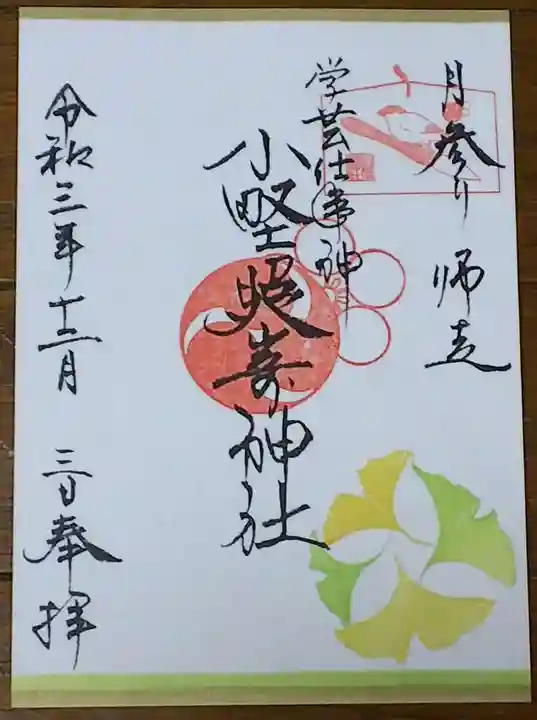 月参り 師走
学芸仕事神
小野照崎神社
令和三年十二月 三日奉拝